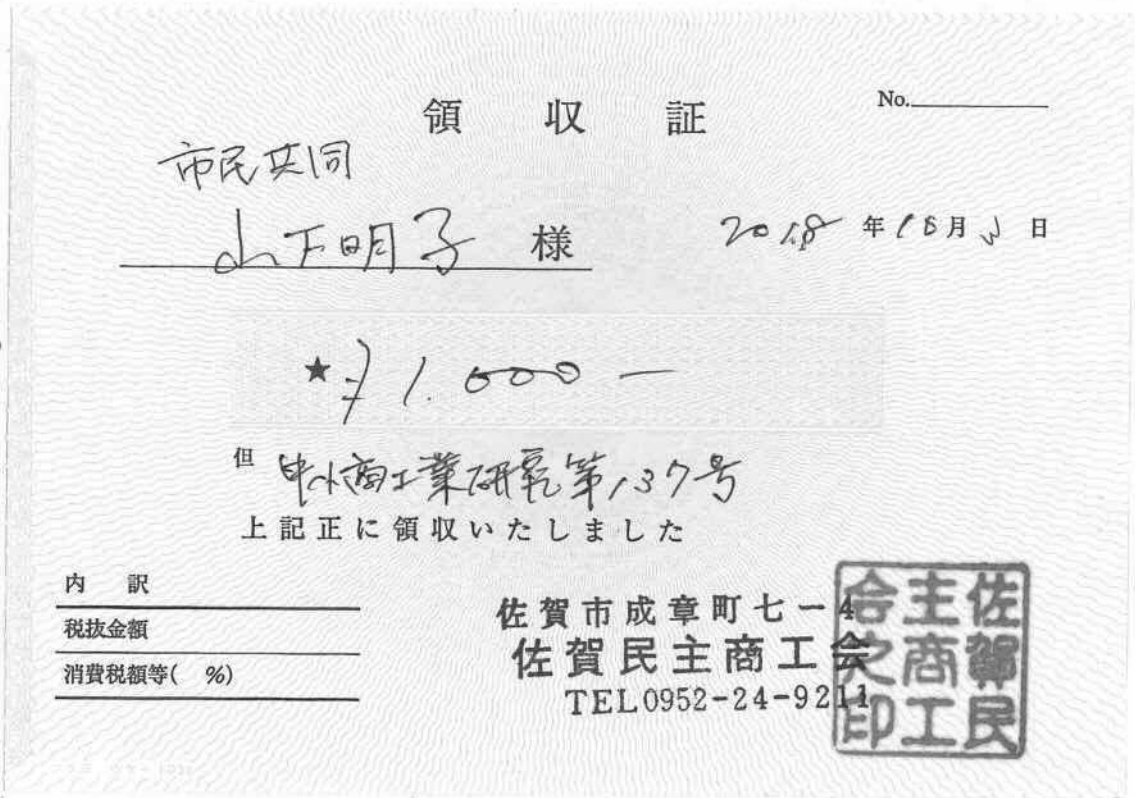 領収証
No.
市民共同
山下明子 様
2018年10月 日
★¥1.000-
但 中小商工業研究第137号
上記正に領収いたしました
内訳
税抜金額
消費税額等( %)
佐賀市成章町七ー4
佐賀民主商工会
TEL0952-24-9211
佐賀民主商工会之印